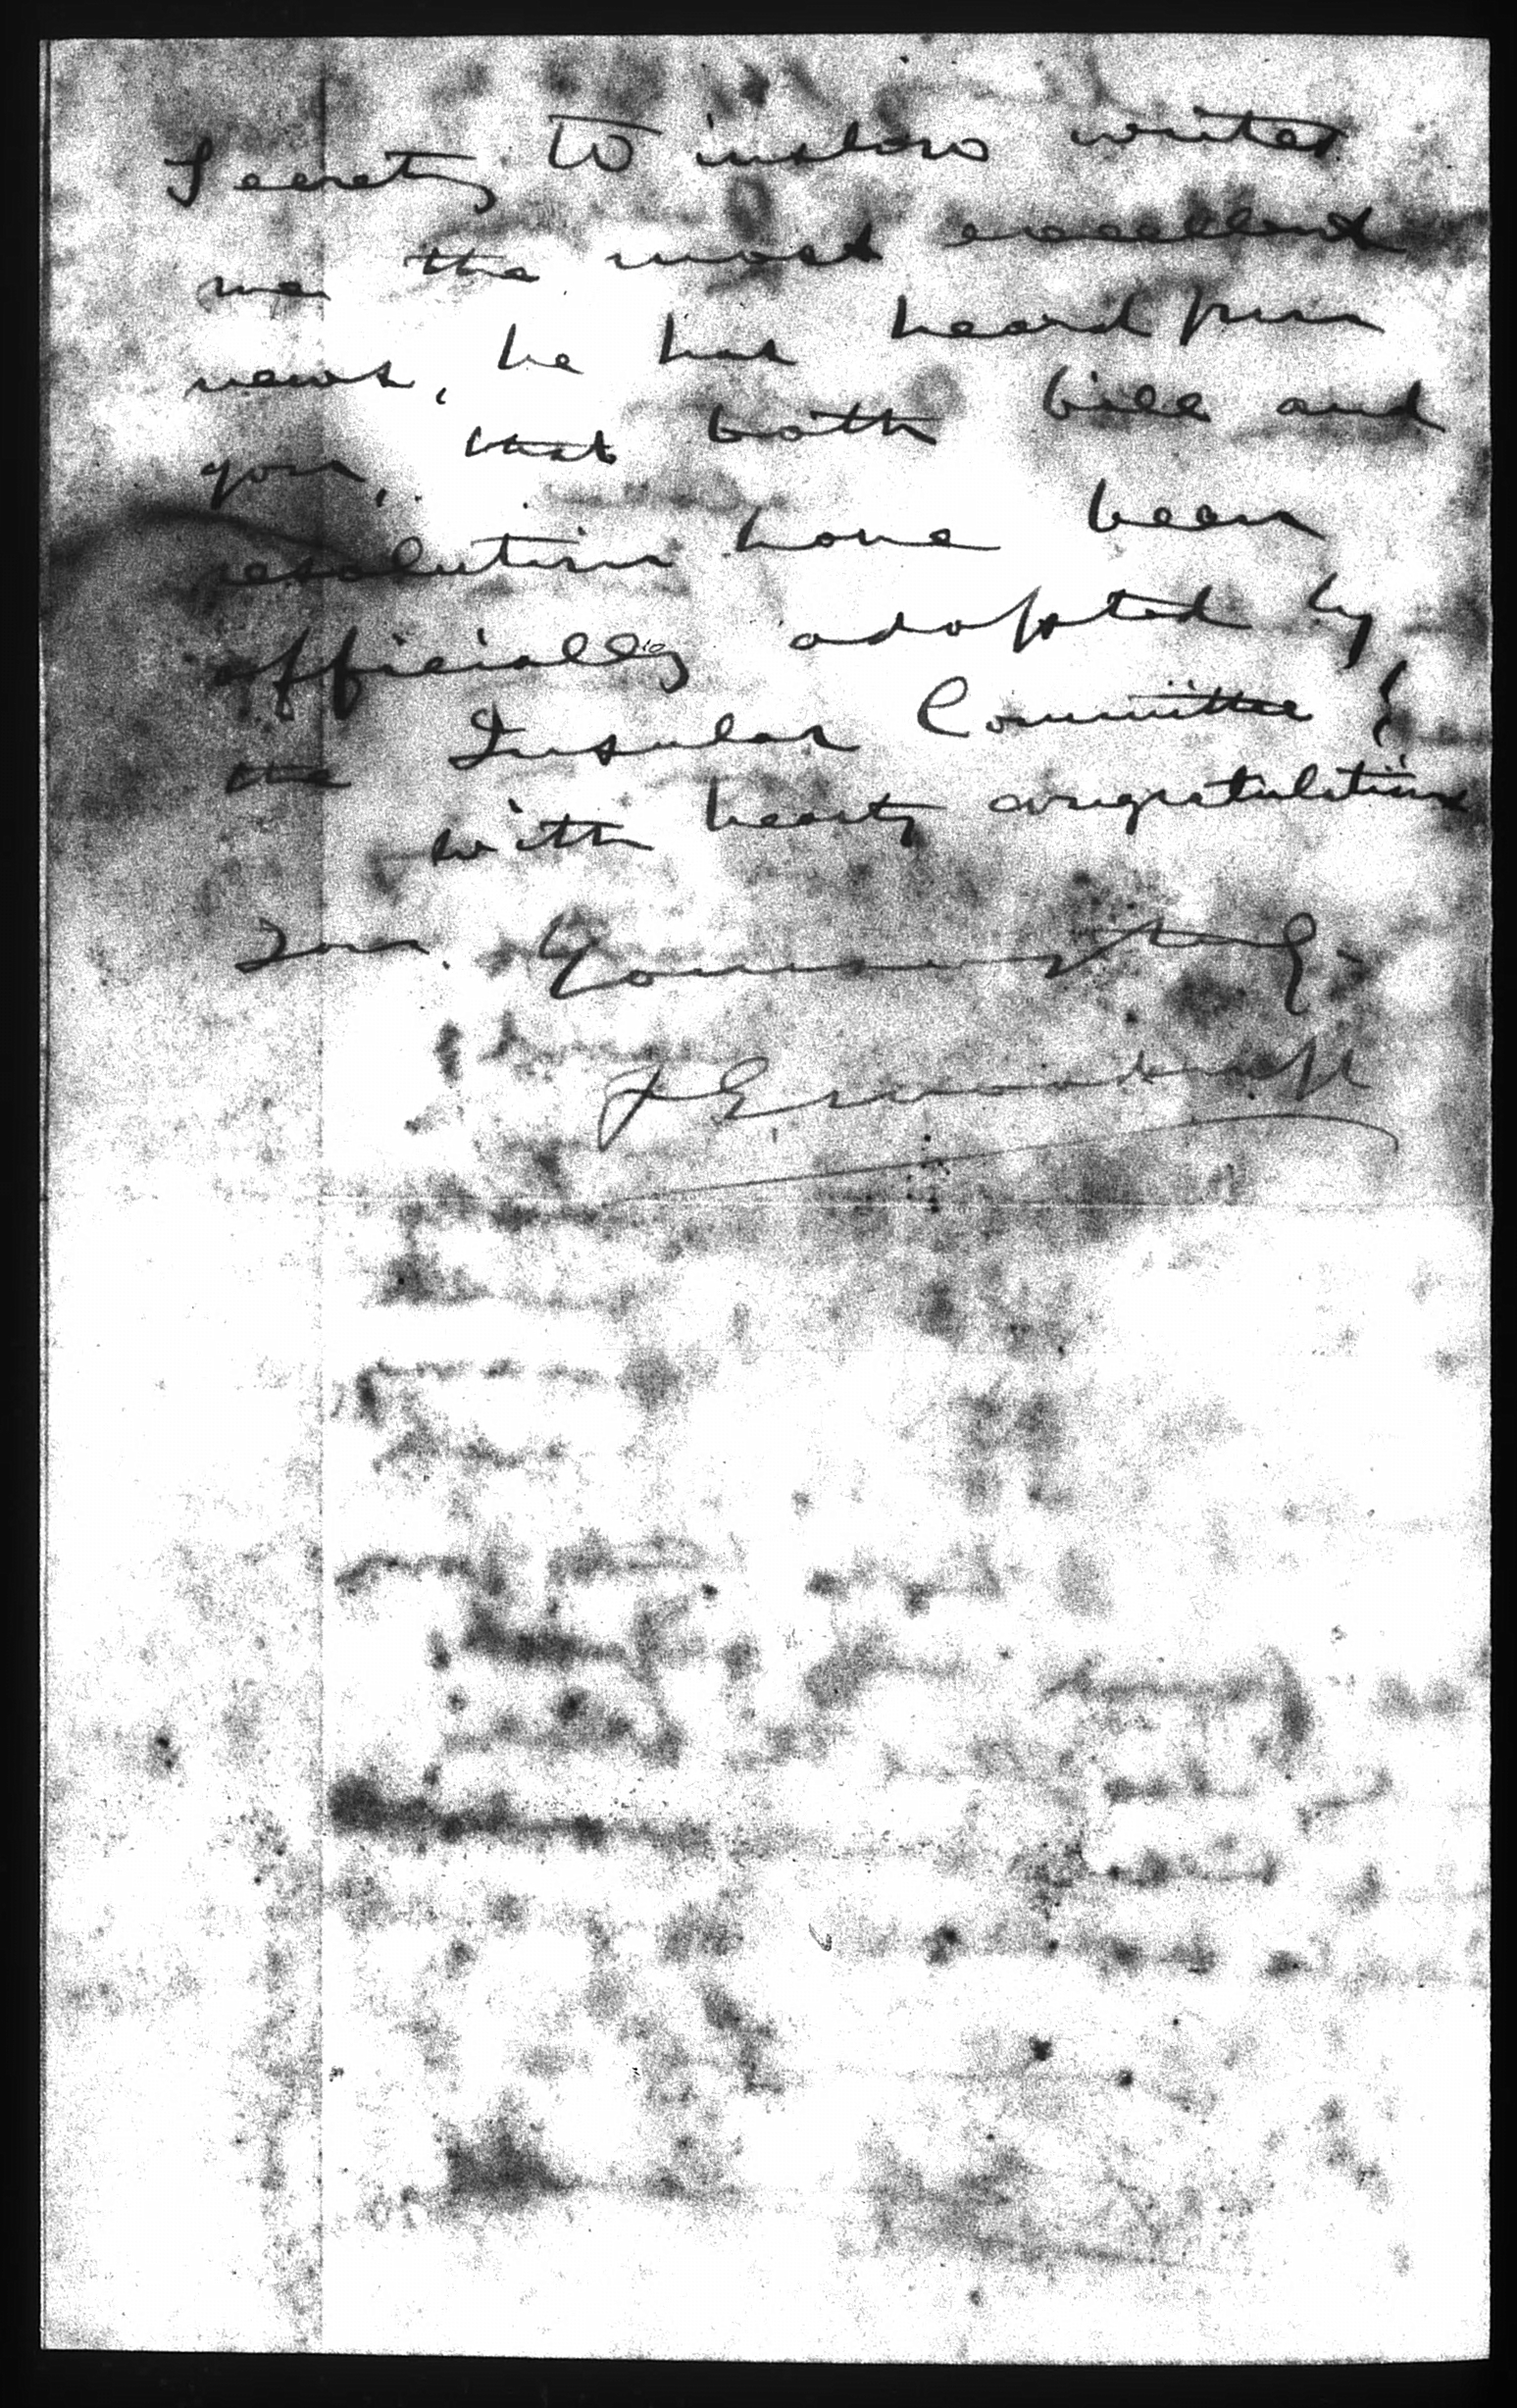 Secretary Winslow writes
me the most excellent
news, he has heard from
you, that both bill and
resolution have been
officially adopted by
the Insular Committee!
With hearty congratulations
Your